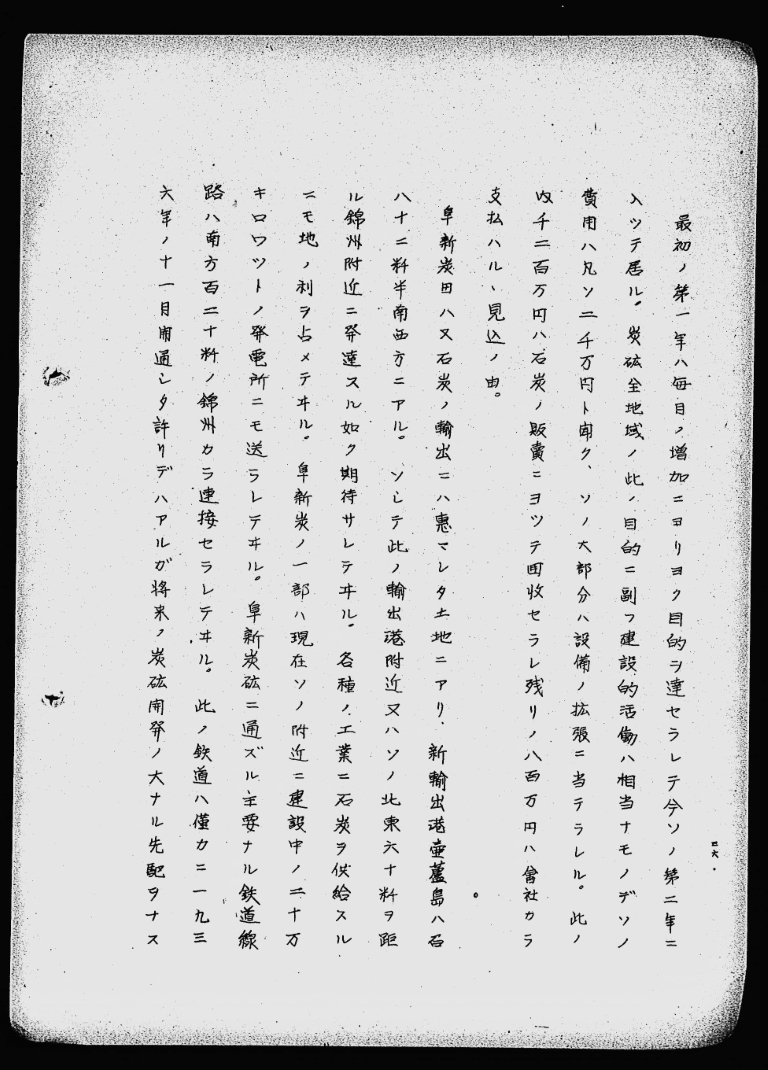 二六.
最初ノ第一年ハ毎月ノ増加ニヨリヨク目的ヲ達セラレテ今ソノ第二年ニ
入ツテ居ル。炭砿全地域ノ此ノ目的ニ副フ建設的活働ハ相当ナモノデソノ
費用ハ凡ソ二千万円ト罕ク、ソノ大部分ハ設備ノ拡張ニ当テラレル。此ノ
内千二百万円ハ石炭ノ販賣ニヨツテ回收セラレ残リノ八百万円ハ會社カラ
支払ハルヽ見込ノ由。
阜新炭田ハ又石炭ノ輸出ニハ惠マレタ土地ニアリ、新輸出港壷蘆島ハ百
八十二粁半南西方ニアル。ソシテ此ノ輸出港附近又ハソノ北東六十粁ヲ距
ル錦州附近ニ発達スル如ク期待サレテヰル。各種ノ工業ニ石炭ヲ供給スル
ニモ地ノ利ヲ占メテヰル。阜新炭ノ一部ハ現在ソノ附近ニ建設中ノ二十万
キロワットノ発電所ニモ送ラレテヰル。阜新炭砿ニ通ズル主要ナル鉄道線
路ハ南方百二十粁ノ錦州カラ連接セラレテヰル。此ノ鉄道ハ僅カニ一九三
六年ノ十一月開通シタ許リデハアルガ将来ノ炭砿開発ノ大ナル先駆ヲナス